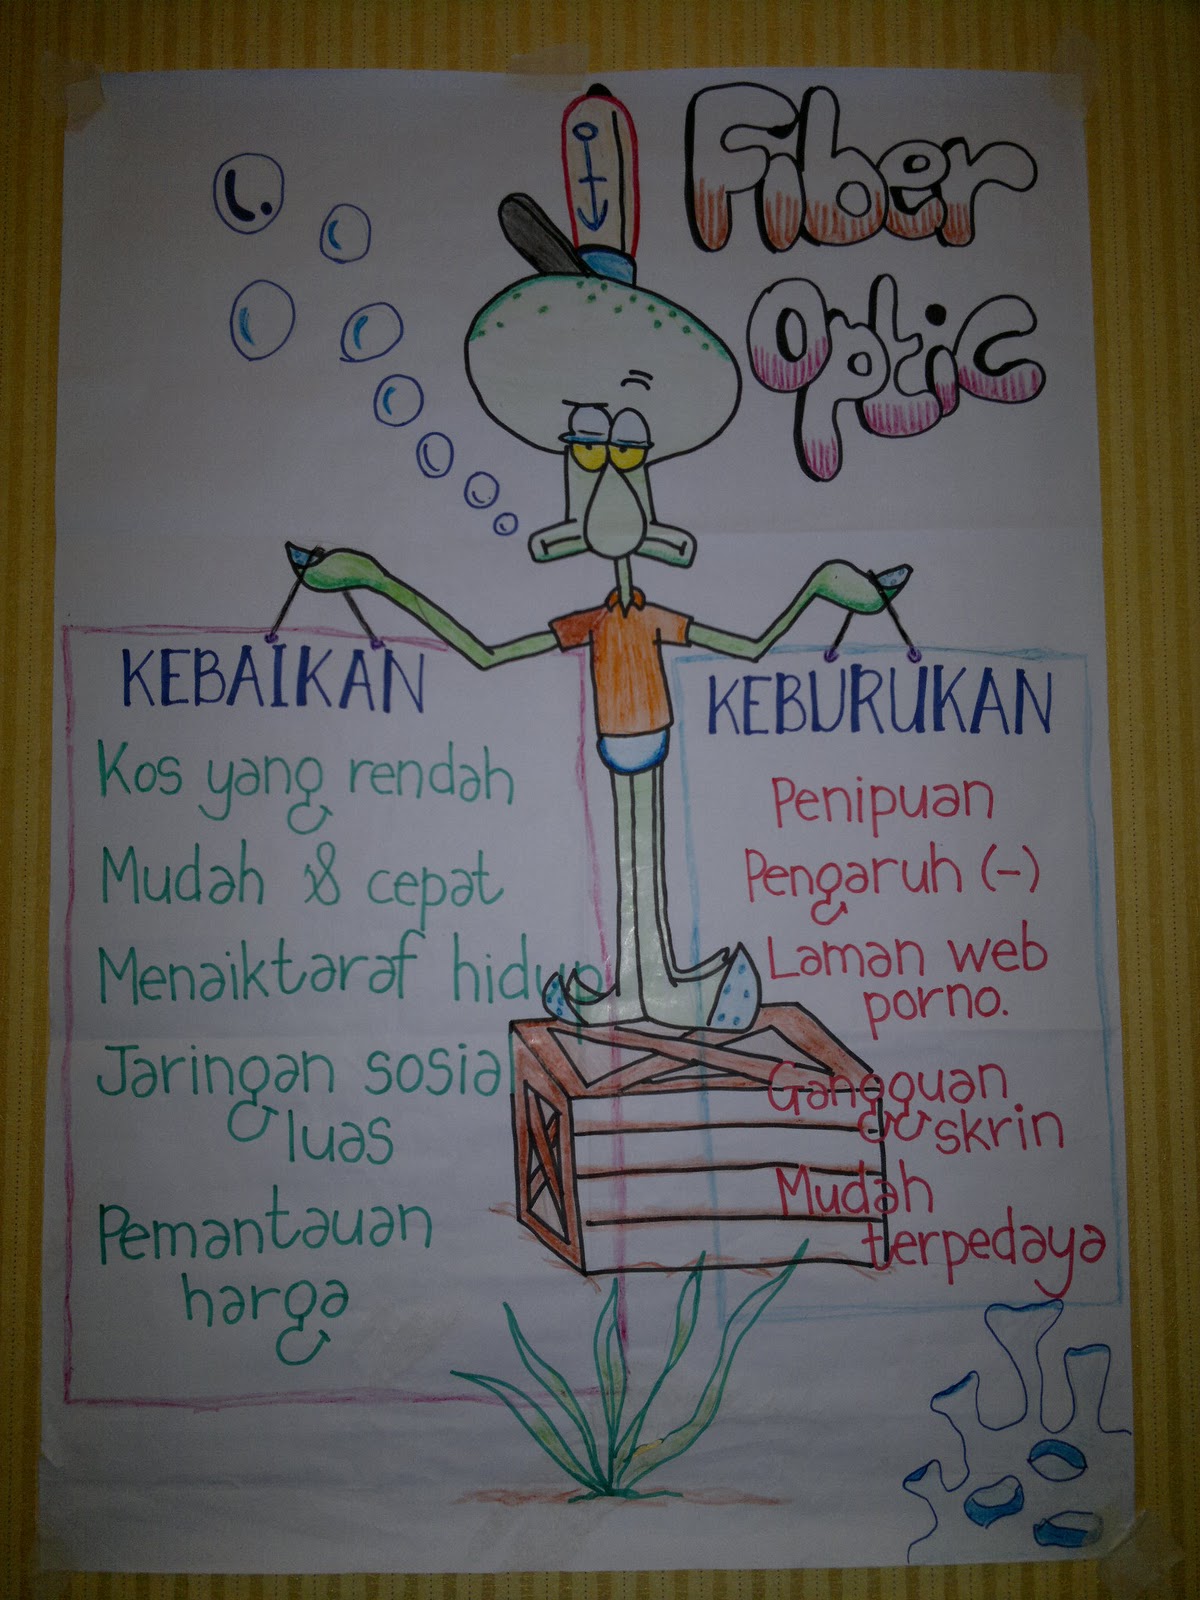 Fiber
Optic
KEBAIKAN
Kos yang rendah
Mudah & cepat
Menaiktaraf hidup
Jaringan sosial
luas
Pemantauan
harga
KEBURUKAN
Penipuan
Pengaruh (-)
Laman web
porno.
Gangguan
skrin
Mudah
terpedaya